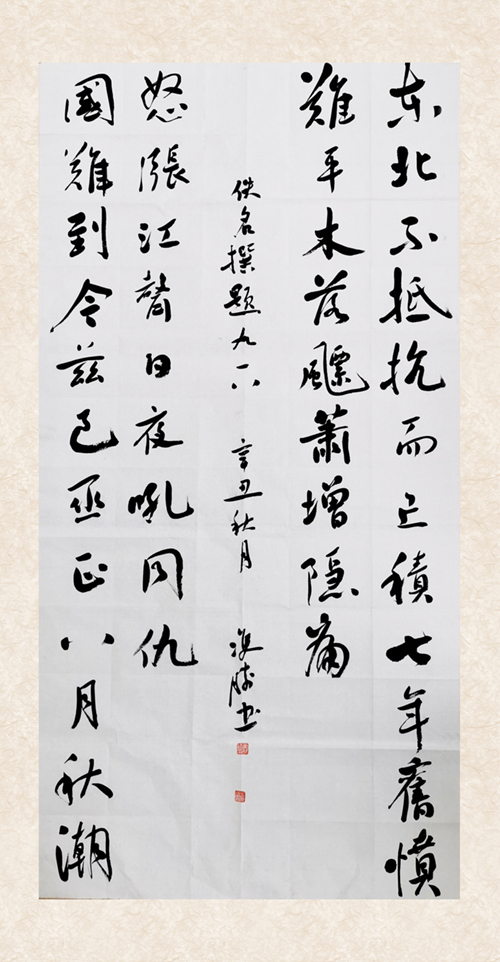 东北不抵抗而亡積七年舊憤
難平木落飄蕭增隱痛
國難到今茲已亟正八月秋潮
怒漲江聲日夜吼同仇
佚名撰题九一八 辛丑秋月 书